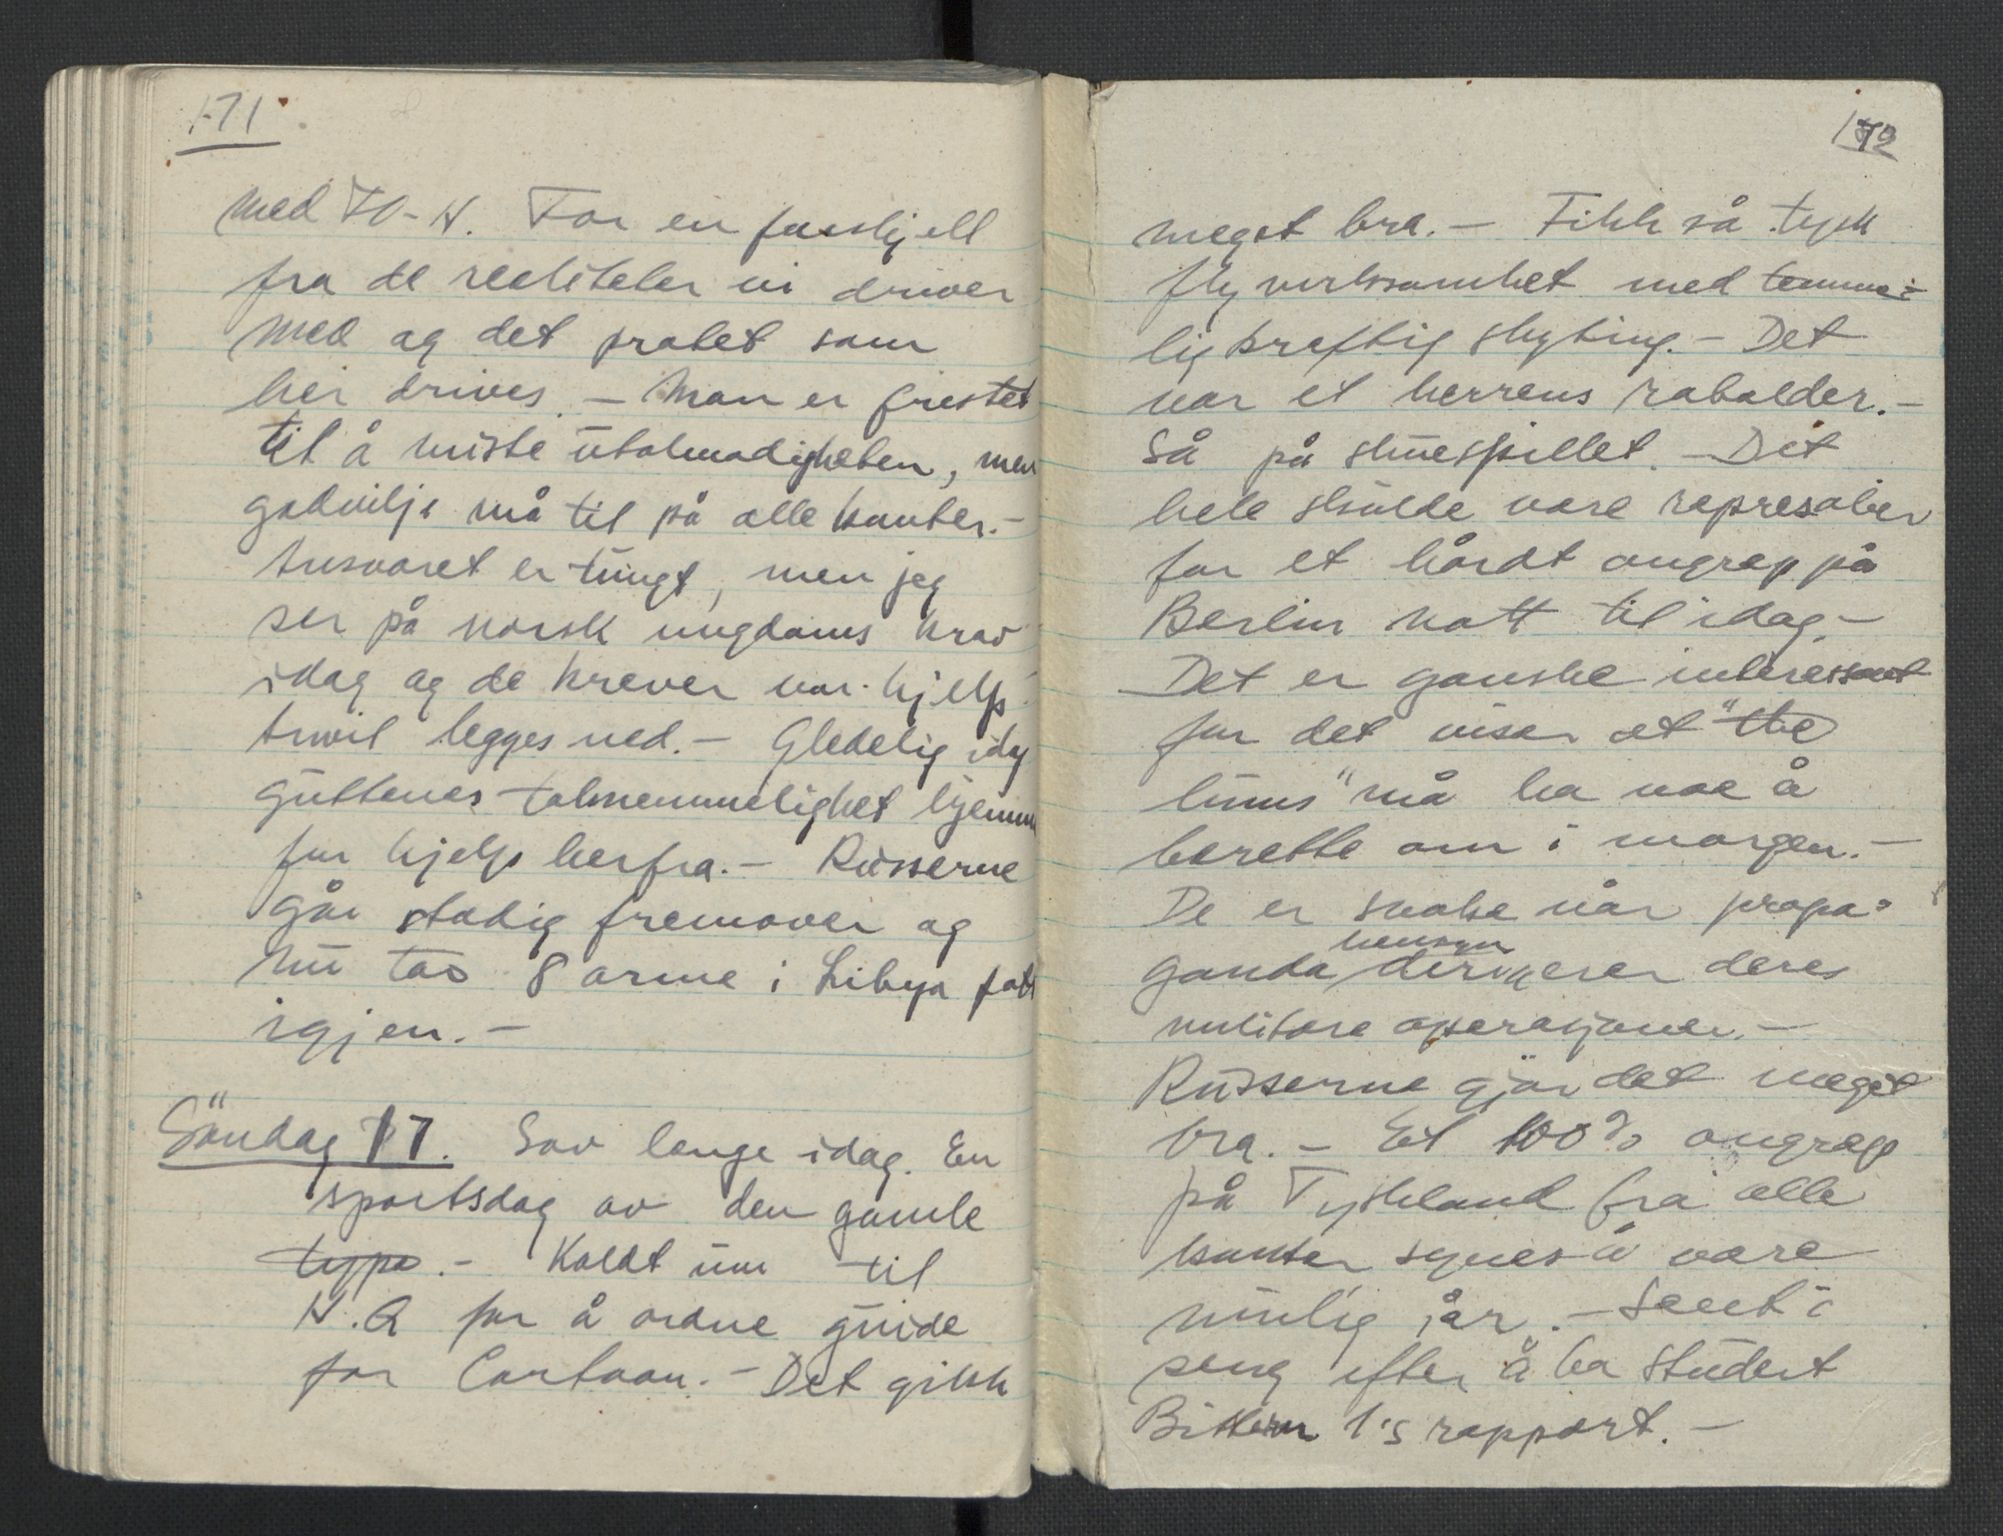 171
med FO-4. For en forskjell
fra de realiteter vi driver
med og det pratet som
her drives. - Man er fristet
til å miste utålmodigheten, men
godvilje må til på alle kanter. -
Ansvaret er tungt, men jeg
ser på norsk ungdoms krav
idag og de krever vår hjelp
tvvil legges ned. - Gledelig idag
guttenes takknemmelighet hjemme
for hjelp herfra. - Russerne
går stadig fremover og
nu tas 8 arme i Libya fatt
igjen. -
Söndag 17. Sov lenge idag. En
sportsdag av den gamle
type. - Kaldt inn til
H.Q for å ordne guide
for Cartoon. - Det gikk
172
meget bra. - Fikk så tysk
flyvirksomhet med temme-
lig kraftig skyting. - Det
var et herrens rabalder. -
Så på skuespillet. - Det
hele skulde være represalier
for et hårdt angrep på
Berlin natt til idag. -
Det er ganske interessant
for det viser at "the
huns" må ha noe å
berette om i morgen. -
De er svake når propa-
ganda hensyn dirigerer deres
militære operasjoner. -
Russerne gjör det meget
bra. - Et 100% angrep
på Tyskland fra alle
kanter synes å være
mulig i år. - Sent i
seng efter å ha studert
Bittern 1's rapport. -